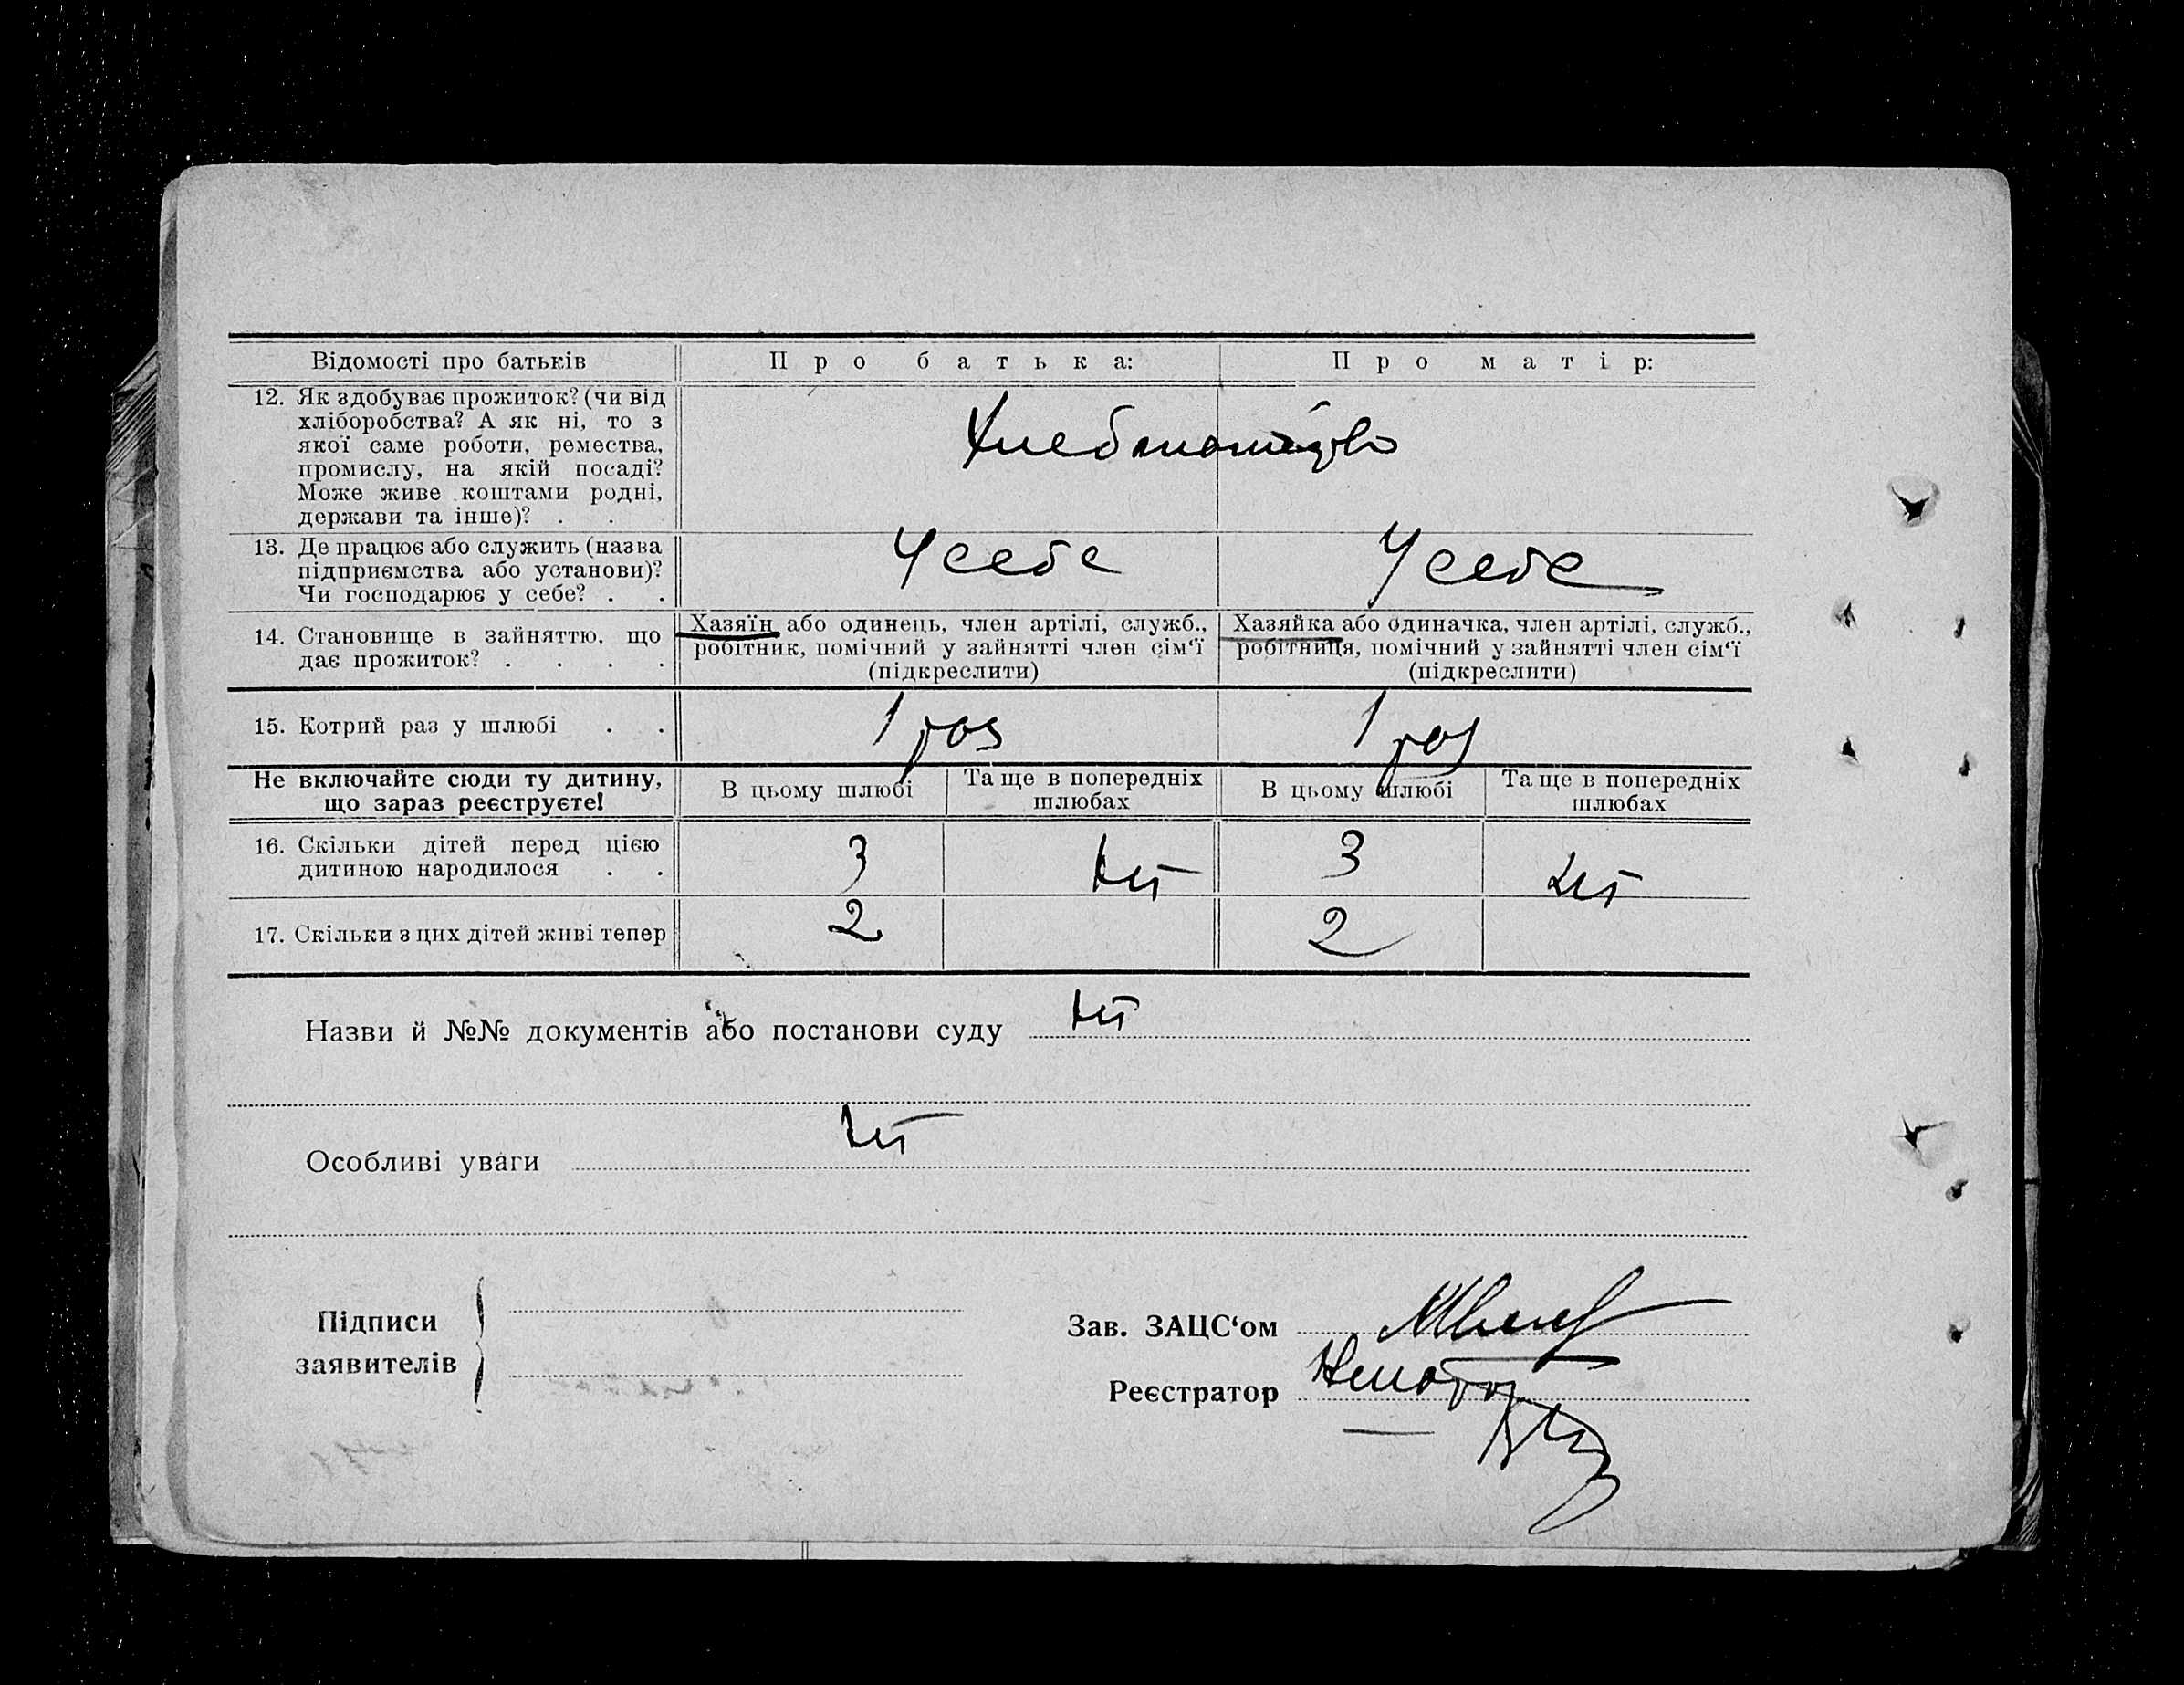 Відомості про батьків Про батька: Про матір:
12. Як здобуває прожиток? (чи від
хліборобства? А як ні, то з
якої саме роботи, ремества,
промислу, на якій посаді?
Може живе коштами родні,
держави та інше)? . .
13. Де працює або служить (назва
підприємства або установи)?
Чи господарює у себе? . .
У себе У себе
14. Становище в зайняттю, що
дає прожиток? . . . .
Хазяїн або одинець, член артілі, служб.,
робітник, помічний у зайнятті член сім‘ї
(підкреслити)
Хазяйка або одиначка, член артілі, служб.,
робітниця, помічний у зайнятті член сім‘ї
(підкреслити)
15. Котрий раз у шлюбі . . 1 раз 1 раз
Не включайте сюди ту дитину,
що зараз реєструєте!
В цьому шлюбі
Та ще в попередніх
шлюбах
В цьому шлюбі
Та ще в попередніх
шлюбах
16. Скільки дітей перед цією
дитиною народилося . .
3 нет 3 нет
17. Скільки з цих дітей живі тепер 2 2
Назви й №№ документів або постанови суду нет
Особливі уваги нет
Підписи
заявителів
Зав. ЗАЦС‘ом
Реєстратор